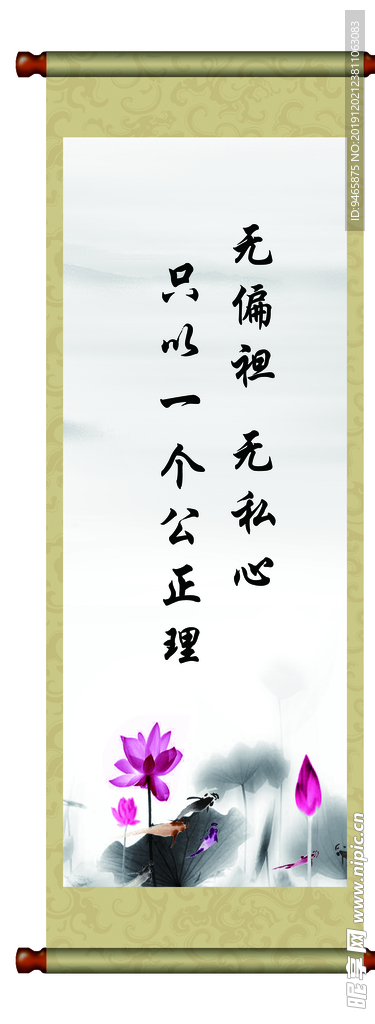 无偏袒 无私心
只以一个公正理
ID:9465875 NO:20191202123811063083
昵享网 www.nipic.cn